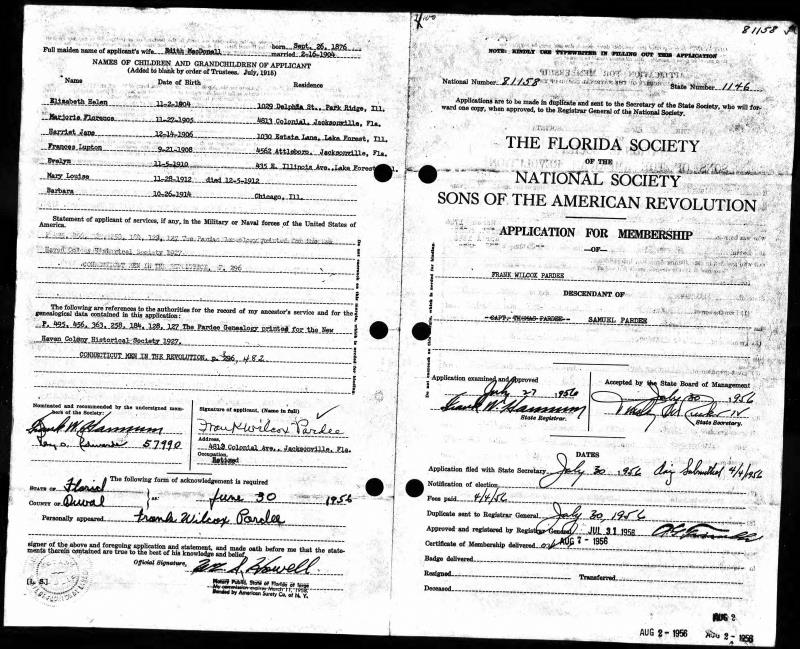 Full maiden name of applicant's wife Edith MacDonell born Sept. 26, 1876
married 2-16-1904
NAMES OF CHILDREN AND GRANDCHILDREN OF APPLICANT
(Added to blank by order of Trustees. July, 1915)
Name Date of Birth Residence
Elizabeth Helen 11-2-1904 1029 Delphia St., Park Ridge, Ill.
Marjorie Florence 11-27-1905 4813 Colonial, Jacksonville, Fla.
Harriet Jane 12-14-1906 1030 Estate Lane, Lake Forest, Ill.
Frances Lupton 9-21-1908 4562 Attleboro, Jacksonville, Fla.
Evelyn 11-5-1910 435 E. Illinois Ave., Lake Forest
Mary Louise 11-28-1912 died 12-5-1912
Barbara 10-26-1914 Chicago, Ill.
Statement of applicant of services, if any, in the Military or Naval forces of the United States of
America.
The Pardee Genealogy printed for the New
Haven Colony Historical Society 1927.
CONNECTICUT MEN IN THE REVOLUTION, P. 296
The following are references to the authorities for the record of my ancestor's service and for the
genealogical data contained in this application:
P. 495, 456, 363, 258, 184, 128, 127 The Pardee Genealogy printed for the New
Haven Colony Historical Society 1927.
CONNECTICUT MEN IN THE REVOLUTION, p. 296, 482
Nominated and recommended by the undersigned mem-
bers of the Society:
Frank W. Hannum
57990
Signature of applicant. (Name in full)
Frank Wilcox Pardee
Address,
4813 Colonial Ave., Jacksonville, Fla.
Occupation,
Retired
The following form of acknowledgement is required
STATE OF Florida
COUNTY OF Duval ss: June 30 1956
Personally appeared Frank Wilcox Pardee
signer of the above and foregoing application and statement, and made oath before me that the state-
ments therein contained are true to the best of his knowledge and belief.
Official Signature, Howell
[L. S.]
Notary Public, State of Florida at large
My commission expires March 11, 1958
Bonded by American Surety Co. of N. Y.
81158
NOTE: KINDLY USE TYPEWRITER IN FILLING OUT THIS APPLICATION
National Number 81158 State Number 1146
Applications are to be made in duplicate and sent to the Secretary of the State Society, who will for-
ward one copy, when approved, to the Registrar General of the National Society.
THE FLORIDA SOCIETY
OF THE
NATIONAL SOCIETY
SONS OF THE AMERICAN REVOLUTION
APPLICATION FOR MEMBERSHIP
—OF—
FRANK WILCOX PARDEE
DESCENDANT OF
CAPT. THOMAS PARDEE SAMUEL PARDEE
Application examined and approved
July 27 1956
Frank W. Hannum
State Registrar.
Accepted by the State Board of Management
July 30 1956
State Secretary.
DATES
Application filed with State Secretary July 30 1956 Orig Submitted 4/4/1956
Notification of election
Fees paid 4/4/56
Duplicate sent to Registrar General July 30, 1956
Approved and registered by Registrar General JUL 31 1956
Certificate of Membership delivered AUG 7 - 1956
Badge delivered
Resigned Transferred
Deceased
AUG 2
AUG 2 - 1956 AUG 2 - 1956